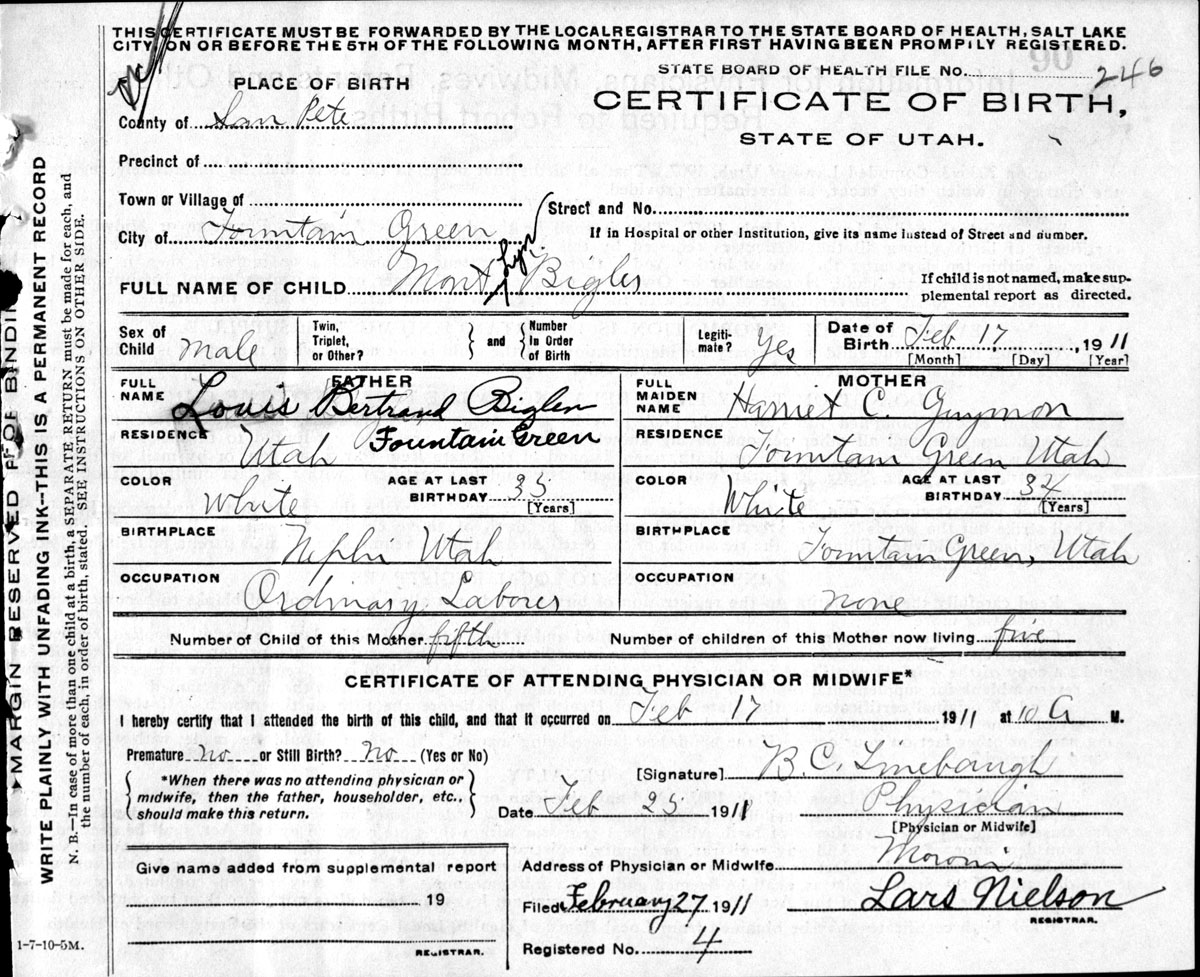 THIS CERTIFICATE MUST BE FORWARDED BY THE LOCAL REGISTRAR TO THE STATE BOARD OF HEALTH, SALT LAKE
CITY, ON OR BEFORE THE 5TH OF THE FOLLOWING MONTH, AFTER FIRST HAVING BEEN PROMPILY REGISTERED.
STATE BOARD OF HEALTH FILE NO. 246
PLACE OF BIRTH
CERTIFICATE OF BIRTH,
STATE OF UTAH.
County of San Pete
Precinct of
Town or Village of
Street and No.
City of Fountain Green
If in Hospital or other Institution, give its name instead of Street and number.
FULL NAME OF CHILD Mont Bigler
If child is not named, make sup-
plemental report as directed.
Sex of Child Male
Twin, Triplet, or Other?
and
Number In Order of Birth
Legiti-mate? Yes
Date of Birth Feb 17, 1911
[Month] [Day] [Year]
FATHER
FULL NAME Louis Bertrand Bigler
RESIDENCE Utah Fountain Green
COLOR White
AGE AT LAST BIRTHDAY 35 [Years]
BIRTHPLACE Nephi Utah
OCCUPATION Ordinary Laborer
MOTHER
FULL MAIDEN NAME Harriet C. Guymon
RESIDENCE Fountain Green Utah
COLOR White
AGE AT LAST BIRTHDAY 34 [Years]
BIRTHPLACE Fountain Green, Utah
OCCUPATION none
Number of Child of this Mother fifth
Number of children of this Mother now living five
CERTIFICATE OF ATTENDING PHYSICIAN OR MIDWIFE*
I hereby certify that I attended the birth of this child, and that it occurred on Feb 17 1911 at 10 A M.
Premature no or Still Birth? no (Yes or No)
*When there was no attending physician or
midwife, then the father, householder, etc.,
should make this return.
[Signature] B. C. Linebaugh
Date Feb 25 1911 Physician
[Physician or Midwife]
Give name added from supplemental report
19
REGISTRAR.
Address of Physician or Midwife Moroni
Filed February 27 1911 Lars Nielson
REGISTRAR.
Registered No. 4
1-7-10-5M.
MARGIN RESERVED FOR BINDING
WRITE PLAINLY WITH UNFADING INK--THIS IS A PERMANENT RECORD
N. B.—In case of more than one child at a birth, a SEPARATE RETURN must be made for each, and
the number of each, in order of birth, stated. SEE INSTRUCTIONS ON OTHER SIDE.